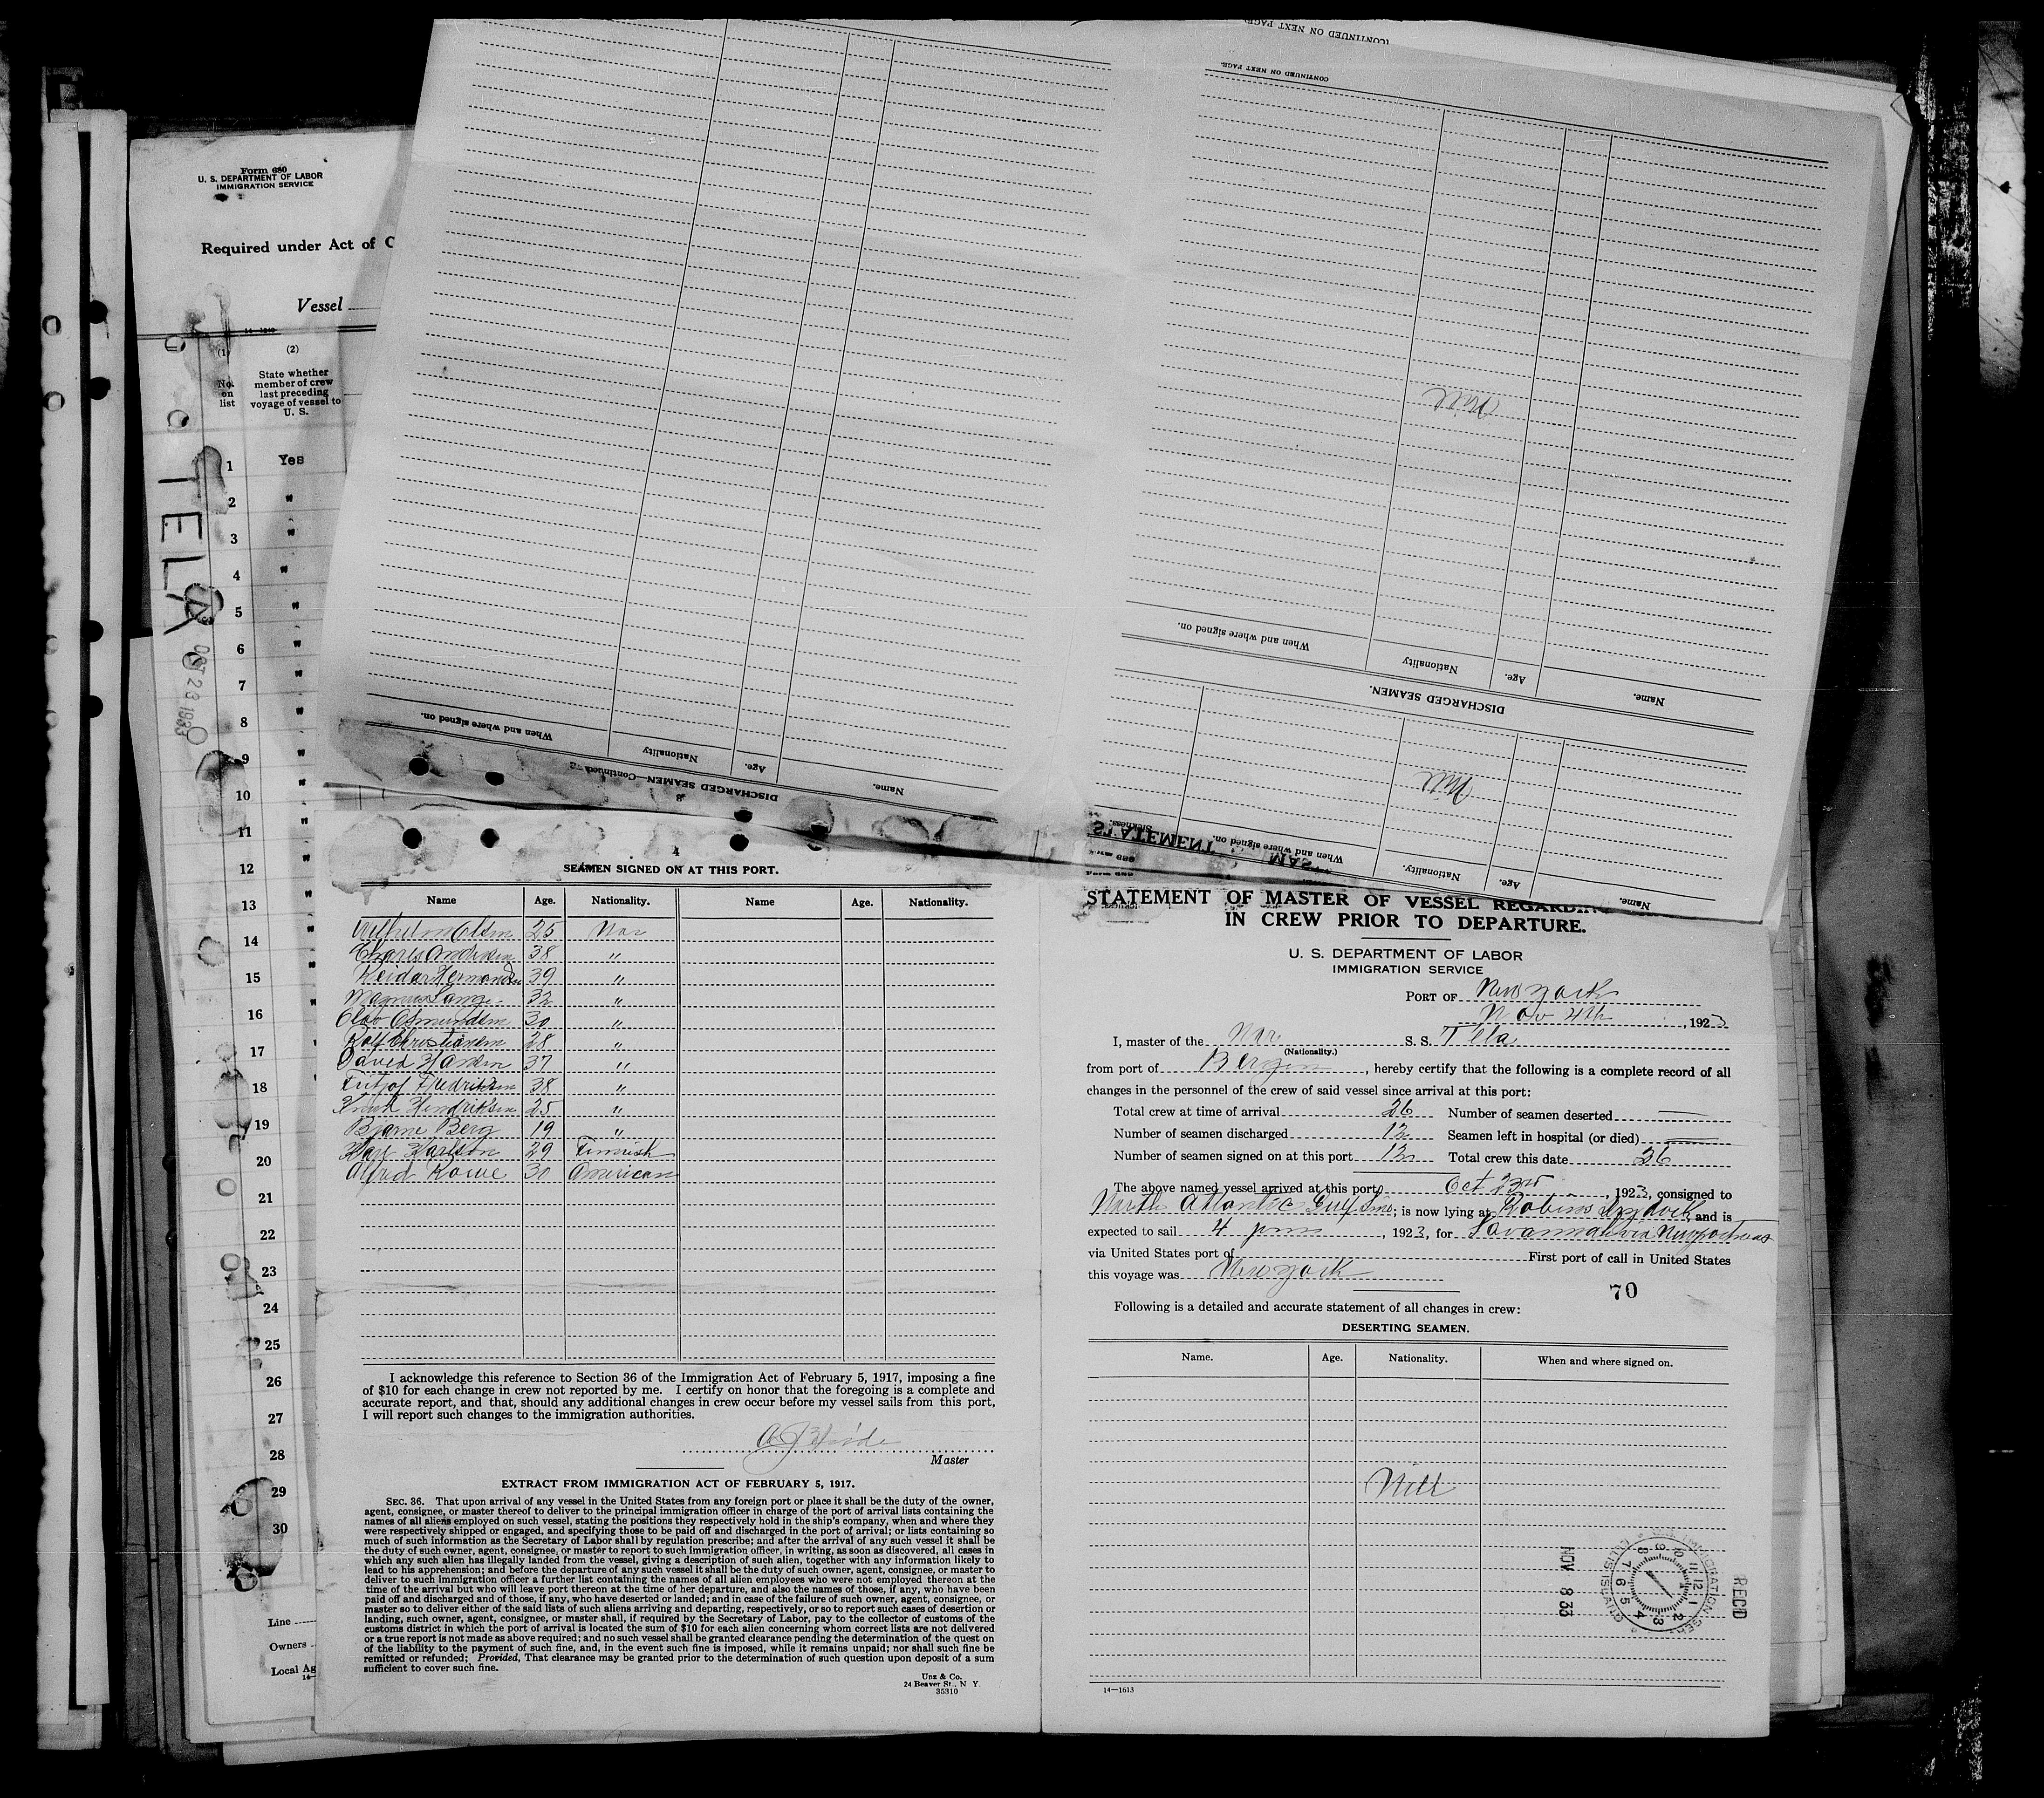 (CONTINUED ON NEXT PAGE)
CONTINUED ON NEXT PAGE.
Form 680
U. S. DEPARTMENT OF LABOR
IMMIGRATION SERVICE
Required under Act of C
Vessel
14—1240
(1) (2)
No. on list
State whether member of crew last preceding voyage of vessel to U. S.
TELA
OCT 23 1923
1 Yes
2 "
3 "
4 "
5 "
6 "
7 "
8 "
9 "
10 "
11 "
12 "
13 "
14 "
15 "
16
17
18
19
20
21
22
23
24
25
26
27
28
29
30
Line
Owners
Local Ag
14—
Nill
When and where signed on. Nationality Age. Name.
DISCHARGED SEAMEN.
Nill
When and where signed on. Nationality. Age. Name.
Sickness
When and where signed on. Nationality Age. Name.
DISCHARGED SEAMEN—Continued
STATEMENT MAS
4
SEAMEN SIGNED ON AT THIS PORT.
Name Age. Nationality. Name Age. Nationality.
Wilhelm Olsen 25 Nor
Charls Andersen 38 "
Reidar Hermansen 39 "
Magnus Lange 32 "
Olav Osmundsen 30 "
Rolf Christiansen 28 "
David Hansen 37 "
Fritjof Fredriksen 38 "
Knut Hendriksen 25 "
Bjarne Berg 19 "
Karl Karlson 29 Finnish
Alfred Rowe 30 American
I acknowledge this reference to Section 36 of the Immigration Act of February 5, 1917, imposing a fine
of $10 for each change in crew not reported by me. I certify on honor that the foregoing is a complete and
accurate report, and that, should any additional changes in crew occur before my vessel sails from this port,
I will report such changes to the immigration authorities.
Master
EXTRACT FROM IMMIGRATION ACT OF FEBRUARY 5, 1917.
SEC. 36. That upon arrival of any vessel in the United States from any foreign port or place it shall be the duty of the owner,
agent, consignee, or master thereof to deliver to the principal immigration officer in charge of the port of arrival lists containing the
names of all aliens employed on such vessel, stating the positions they respectively hold in the ship's company, when and where they
were respectively shipped or engaged, and specifying those to be paid off and discharged in the port of arrival; or lists containing so
much of such information as the Secretary of Labor shall by regulation prescribe; and after the arrival of any such vessel it shall be
the duty of such owner, agent, consignee, or master to report to such immigration officer, in writing, as soon as discovered, all cases in
which any such alien has illegally landed from the vessel, giving a description of such alien, together with any information likely to
lead to his apprehension; and before the departure of any such vessel it shall be the duty of such owner, agent, consignee, or master to
deliver to such immigration officer a further list containing the names of all alien employees who were not employed thereon at the
time of the arrival but who will leave port thereon at the time of her departure, and also the names of those, if any, who have been
paid off and discharged and of those, if any, who have deserted or landed; and in case of the failure of such owner, agent, consignee, or
master so to deliver either of the said lists of such aliens arriving and departing, respectively, or so to report such cases of desertion or
landing, such owner, agent, consignee, or master shall, if required by the Secretary of Labor, pay to the collector of customs of the
customs district in which the port of arrival is located the sum of $10 for each alien concerning whom correct lists are not delivered
or a true report is not made as above required; and no such vessel shall be granted clearance pending the determination of the quest on
of the liability to the payment of such fine, and, in the event such fine is imposed, while it remains unpaid; nor shall such fine be
remitted or refunded; Provided, That clearance may be granted prior to the determination of such question upon deposit of a sum
sufficient to cover such fine.
Unz & Co.
24 Beaver St., N Y.
35310
Form 689
STATEMENT OF MASTER OF VESSEL REGARDING
IN CREW PRIOR TO DEPARTURE.
U. S. DEPARTMENT OF LABOR
IMMIGRATION SERVICE
PORT OF New York
Nov 4th, 1923
I, master of the Nor S. S. Tela
(Nationality.)
from port of Bergen, hereby certify that the following is a complete record of all
changes in the personnel of the crew of said vessel since arrival at this port:
Total crew at time of arrival 26 Number of seamen deserted —
Number of seamen discharged 12 Seamen left in hospital (or died) —
Number of seamen signed on at this port 12 Total crew this date 26
The above named vessel arrived at this port Oct 23rd, 1923, consigned to
North Atlantic Gulf Line; is now lying at Robins Drydock, and is
expected to sail 4 pm, 1923, for Savannah via Newport News
via United States port of First port of call in United States
this voyage was New York
70
Following is a detailed and accurate statement of all changes in crew:
DESERTING SEAMEN.
Name. Age. Nationality. When and where signed on.
Nill
REC'D
IMMIGRATION SER
ELLIS ISLAND
12 1 2 3 4 5 6 7 8 9 10 11
NOV 8 23
14—1613